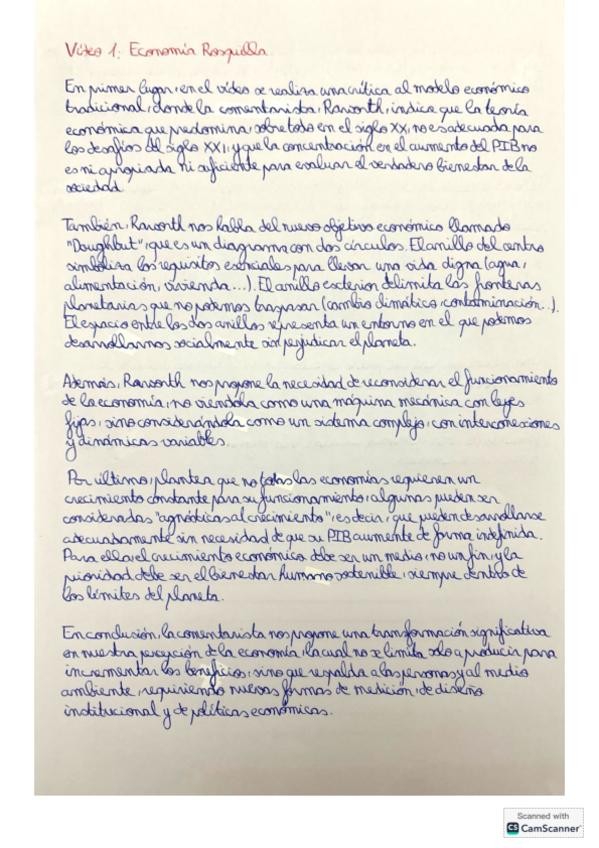 Vídeo 1: Economía Rosquilla
En primer lugar, en el vídeo se realiza una crítica al modelo económico
tradicional, donde la comentarista, Raworth, indica que la teoría
económica que predomina, sobre todo en el siglo XX, no es adecuada para
los desafíos del siglo XXI, y que la concentración en el aumento del PIB no
es ni apropiada ni suficiente para evaluar el verdadero bienestar de la
sociedad.
También, Raworth nos habla del nuevo objetivo económico llamado
"Doughbut", que es un diagrama con dos círculos. El anillo del centro
simboliza los requisitos esenciales para llevar una vida digna (agua,
alimentación, vivienda...). El anillo exterior delimita las fronteras
planetarias que no podemos traspasar (cambio climático, contaminación...).
El espacio entre los dos anillos representa un entorno en el que podemos
desarrollarnos socialmente sin perjudicar el planeta.
Además, Raworth nos propone la necesidad de reconsiderar el funcionamiento
de la economía, no viéndola como una máquina mecánica con leyes
fijas, sino considerándola como un sistema complejo, con interconexiones
y dinámicas variables.
Por último, plantea que no todas las economías requieren un
crecimiento constante para su funcionamiento, algunas pueden ser
consideradas "agnósticas al crecimiento", es decir, que pueden desarrollarse
adecuadamente sin necesidad de que su PIB aumente de forma indefinida.
Para ella, el crecimiento económico debe ser un medio, no un fin, y la
prioridad debe ser el bienestar humano sostenible, siempre dentro de
los límites del planeta.
En conclusión, la comentarista nos propone una transformación significativa
en nuestra percepción de la economía, la cual no se limita solo a producir para
incrementar los beneficios, sino que respalda a las personas y al medio
ambiente, requiriendo nuevas formas de medición, de diseño
institucional y de políticas económicas.
Scanned with
CS CamScanner